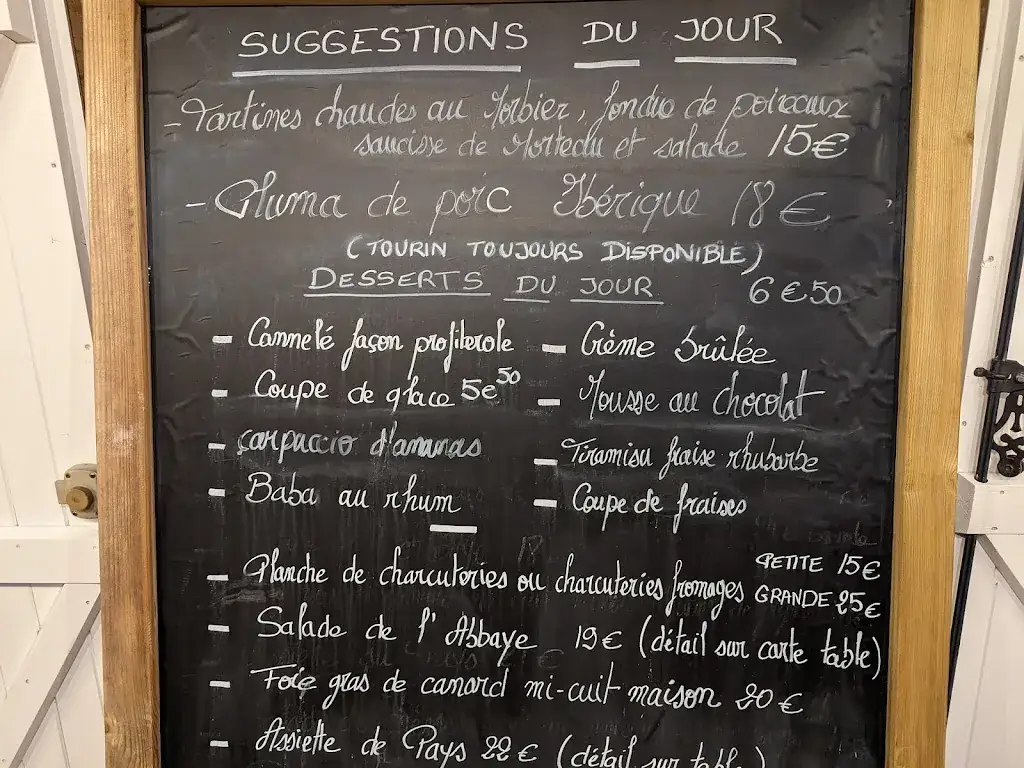 SUGGESTIONS DU JOUR
- Tartines chaudes au Morbier, fondue de poireaux
saucisse de Morteau et salade 15€
- Pluma de porc Ibérique 18€
(TOURIN TOUJOURS DISPONIBLE)
DESSERTS DU JOUR 6€50
- Cannelé façon profiterole - Crème brûlée
- Coupe de glace 5€50 - Mousse au chocolat
- çarpuccio d'ananas - Tiramisu fraise rhubarbe
- Baba au rhum - Coupe de fraises
PETITE 15€
- Planche de charcuteries ou charcuteries fromages GRANDE 25€
- Salade de l'Abbaye 19€ (détail sur carte table)
- Foie gras de canard mi-cuit maison 20€
- Assiette de Pays 22€ (détail sur table)